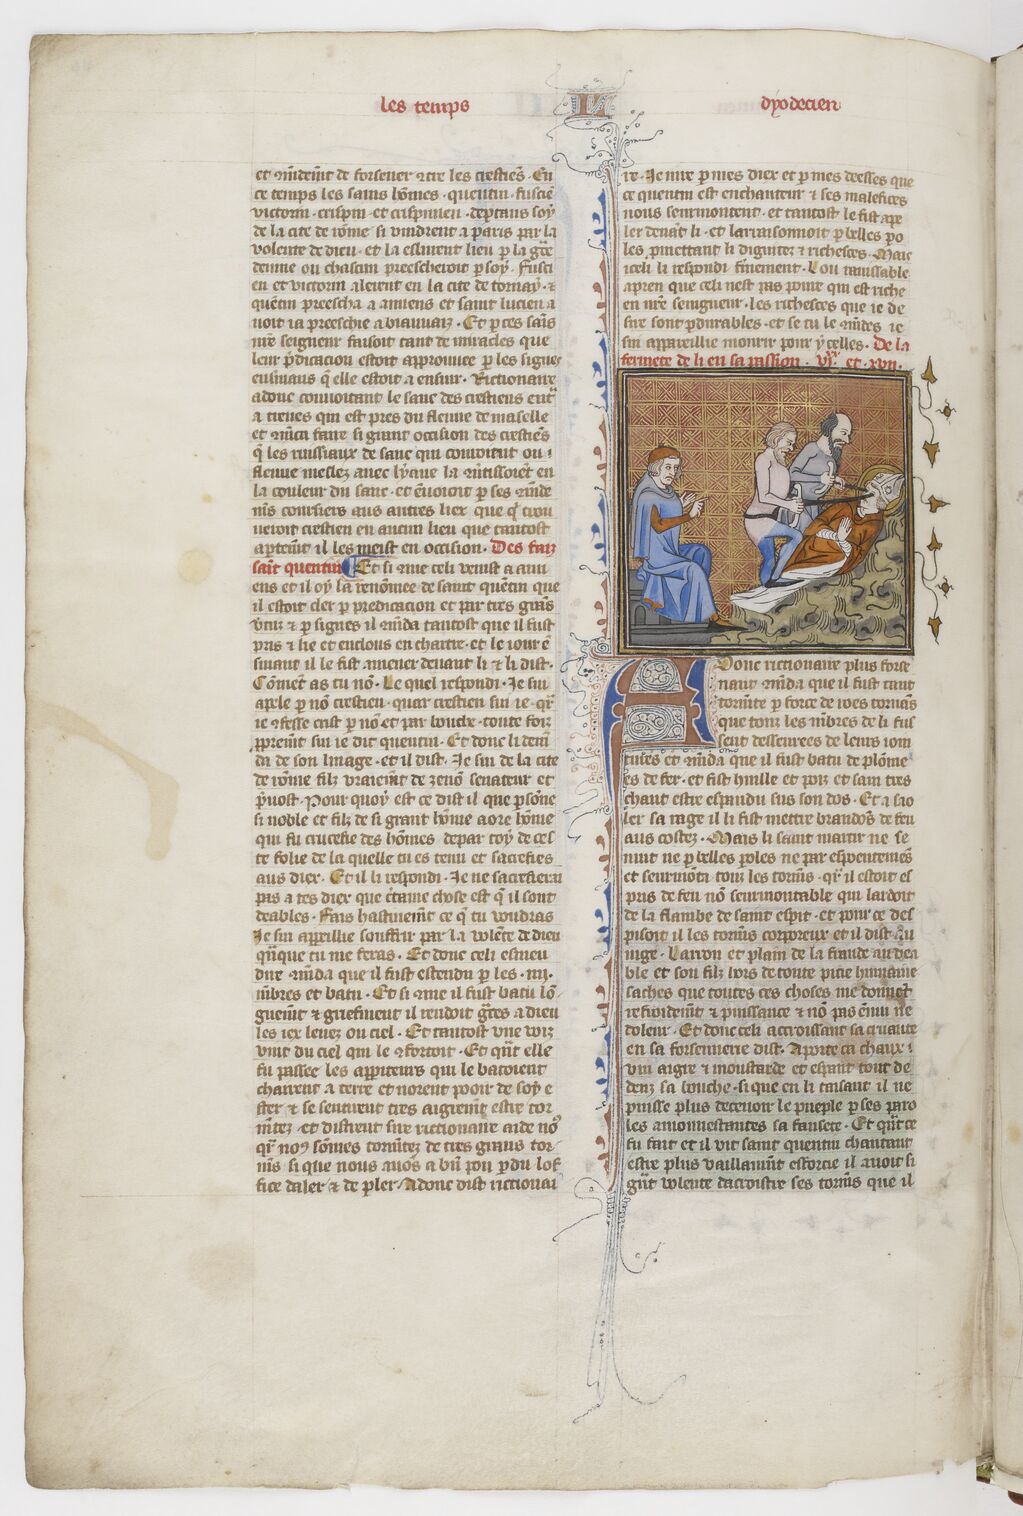 les temps
dyodecien
et om̃dem̃t de forsener ɔtre les crestiẽs · En
ce temps les sains hõmes · quentin · fuscie͂
victorin · crispin · et crispinien · deptans soy
de la cite de rõme si vindrent a paris par la
volente de dieu · et la eslurent lieu p la gr̃e
deuine ou chascun preescheroit p soy · fusci
en et victorin alerent en la cite de tornay · ⁊
quẽtin preescha a amiens et saint lucien a
uoit ia preeschie a biauuaiz · Et p ces sai͂s
nr̃e seigneur faisoit tant de miracles que
leur p̃dicacion estoit approuuee p les signes
ensiuans q̃ elle estoit a ensuir · Rictionaire
adonc conuoitant le sanc des crestiens
a treues qui est pres du fleuue de maselle
et faire si grant occision des crestiẽs
q̃ les ruissiaux de sanc qui couroient ou
fleuue meslez auec lyaue la conuertissoiẽt en
la couleur du sanc · et ẽuoioit p ses
coursiers aus autres liex que q̃ trou
ueroit crestien en aucun lieu que tantost
il les meist en occision · Des faiz
sait̃ quentin Et si ɔme celi venist a ami
ens et il oÿ la renõmee de saint quẽtin que
il estoit cler p predicacion et par tres grãs
⁊ p signes il mãda tantost que il fust
pris ⁊ lie et enclous en chartre · et le iour ẽ
suiuant il le fist amener deuant li ⁊ li dist ·
Cõmẽt as tu nõ · Le quel respondi · Je sui
apele p nõ crestien · quar crestien sui ie · qr̃
ie ɔfesse crist p nõ et par bouche · toute foiz
ꝓprem̃t sui ie dit quentin · Et donc li demã
da de son linage · et il dist · Je sui de la cite
de rõme filz vraiem̃t de zenõ senateur et
p̃uost · Pour quoy est ce dist il que p̃sõne
si noble et filz de si grant hõme aore hõme
qui fu crucefie des hõmes depar toy de ces
te folie de la quelle tu es tenu et sacrefies
aus diex · Et il li respondi · Je ne sacrefierai
pas a tes diex que c̃taine chose est q̃ il sont
deables · Fais hastiuem̃t ce q̃ tu voudras
Je sui appeillie souffrir par la volẽte de dieu
q̃nque tu me feras · Et donc celi esmeu
dire mãda que il fust estendu p les · iiij ·
mẽbres et batu · Et si ɔme il fust batu lõ
guem̃t ⁊ griefment il rendoit gr̃ces a dieu
les iex leuez ou ciel · Et tantost vne voiz
vint du ciel qui le ɔfortoit · Et qñt elle
fu passee les appiteurs qui le batoient
cheirent a terre et norent pooir de soy e
ster ⁊ se sentirent tres aigrem̃t estre tor
mẽtez · et distrent sire rictionaire aide nõ⁹
qr̃ no⁹ sõmes tormẽtez de tres grans tor-
mẽs si que nous auõs a biẽ pou p̃du lof
fice daler ⁊ de pler · Adonc dist rictionai
re · Je iure p mes diex et p mes deesses que
ce quentin est enchanteur ⁊ ses malefices
nous seurmontent · et tantost le fist ape
ler deuãt li · et larraisonnoit p belles po
les · pmettant li dignitez ⁊ richesces · Mais
iceli li respondi fr̃mement · Lou rauissable
apren que celi nest pas poure qui est riche
en nr̃e seigneur · les richesces que ie de
sire sont pdurables · et se tu le ie
sui appareillie mourir pour ycelles · De la
fermete de li en sa passion · vjᵉ · et · xvij ·
Adonc rictionaire plus forse
nant mãda que il fust tant
tormẽte p force de roes tornãs
que touz les mẽbres de li fus
sent dessevrees de leurs ioin
tures et mãda que il fust batu de plõme
es de fer · et fist huille et poiz et sain tres
chaut estre espandu sus son dos · Et a sao
ler sa rage il li fist mettre brandõs de feu
aus costez · Mais li saint martir ne se
mut ne p belles poles ne par espoentemẽs
et seurmõta touz les tormẽs · qr̃ il estoit es
pris de feu nõ seurmontable qui lardoit
de la flambe de saint espit · et pour ce des
pisoit il les tormẽs corporeux et il dist au
iuge · Larron et plain de la fraude au dea
ble et son filz hors de toute pitie humaine
saches que toutes ces choses me donnent
refroidem̃t ⁊ puissance ⁊ nõ pas ẽnui ne
doleur · Et donc celi accroissant sa cruaute
en sa forsennerie dist · Aporte ca chaux ⁊
vin aigre ⁊ moustarde et espant tout de
denz sa bouche · si que en li taisant il ne
puisse plus deceuoir le pueple p ses paro
les amonnestantes sa fausete · Et qñt ce
fu fait et il vit saint quentin chantant
estre plus vaillanm̃t esforcie il auoit si
gñt volente dacroistre ses tormẽs que il